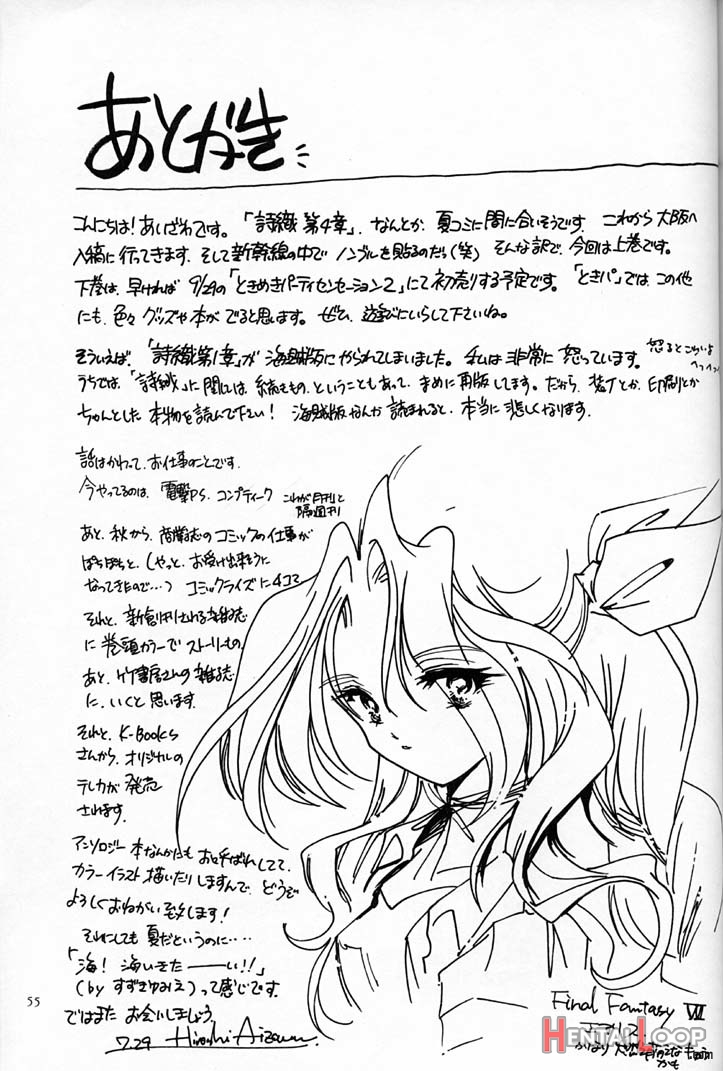 あとがき
こんにちは!あいざわです。「詩織 第4章」、なんとか、夏コミに間に合いそうです。これから大阪へ
入稿に行ってきます。そして新幹線の中でノンブルを貼るのだ(笑) そんな訳で、今回は上巻です。
下巻は、早ければ 9/29の「ときめきパーティセンセーション2」にて初売りする予定です。「ときパ」では、この他
にも、色々グッズや本がでると思います。ぜひ、遊びにいらして下さいね。
そういえば、「詩織第1章」が海賊版にやられてしまいました。私は非常に怒っています。
怒るとこわいよ
へっへっへっ
うちでは、「詩織」に関しては、続きもの、ということもあって、まめに再版してます。だから、装丁とか、印刷とか
ちゃんとした本物を読んで下さい! 海賊版なんか読まれると、本当に悲しくなります。
話はかわって、お仕事のことです。
今やってるのは、電撃PS、コンプティーク
これが月刊と
隔週刊
あと、秋から、商業誌のコミックの仕事が
ぼちぼちと、(やっと、お受け出来そうに
なってきたので…) コミックライズに4コマ
それと、新創刊される雑誌
に巻頭カラーでストーリーもの
あと、竹書房さんの雑誌
に、いくと思います。
それと、K-Books
さんから、オリジナルの
テレカが発売
されます。
アンソロジー本なんかにもお呼ばれしてて、
カラーイラスト描いたりしますんで、どうぞ
よろしくおねがい致します!
それにしても夏だというのに‥‥
「海! 海いきたーーい!!」
(by すずきゆみえ)って感じです。
ではまた お会いしましょう。
7.29 Hiroshi Aizawa.
55
Final Fantasy VII
エアリス
かも
HENTAI LOOP
.com